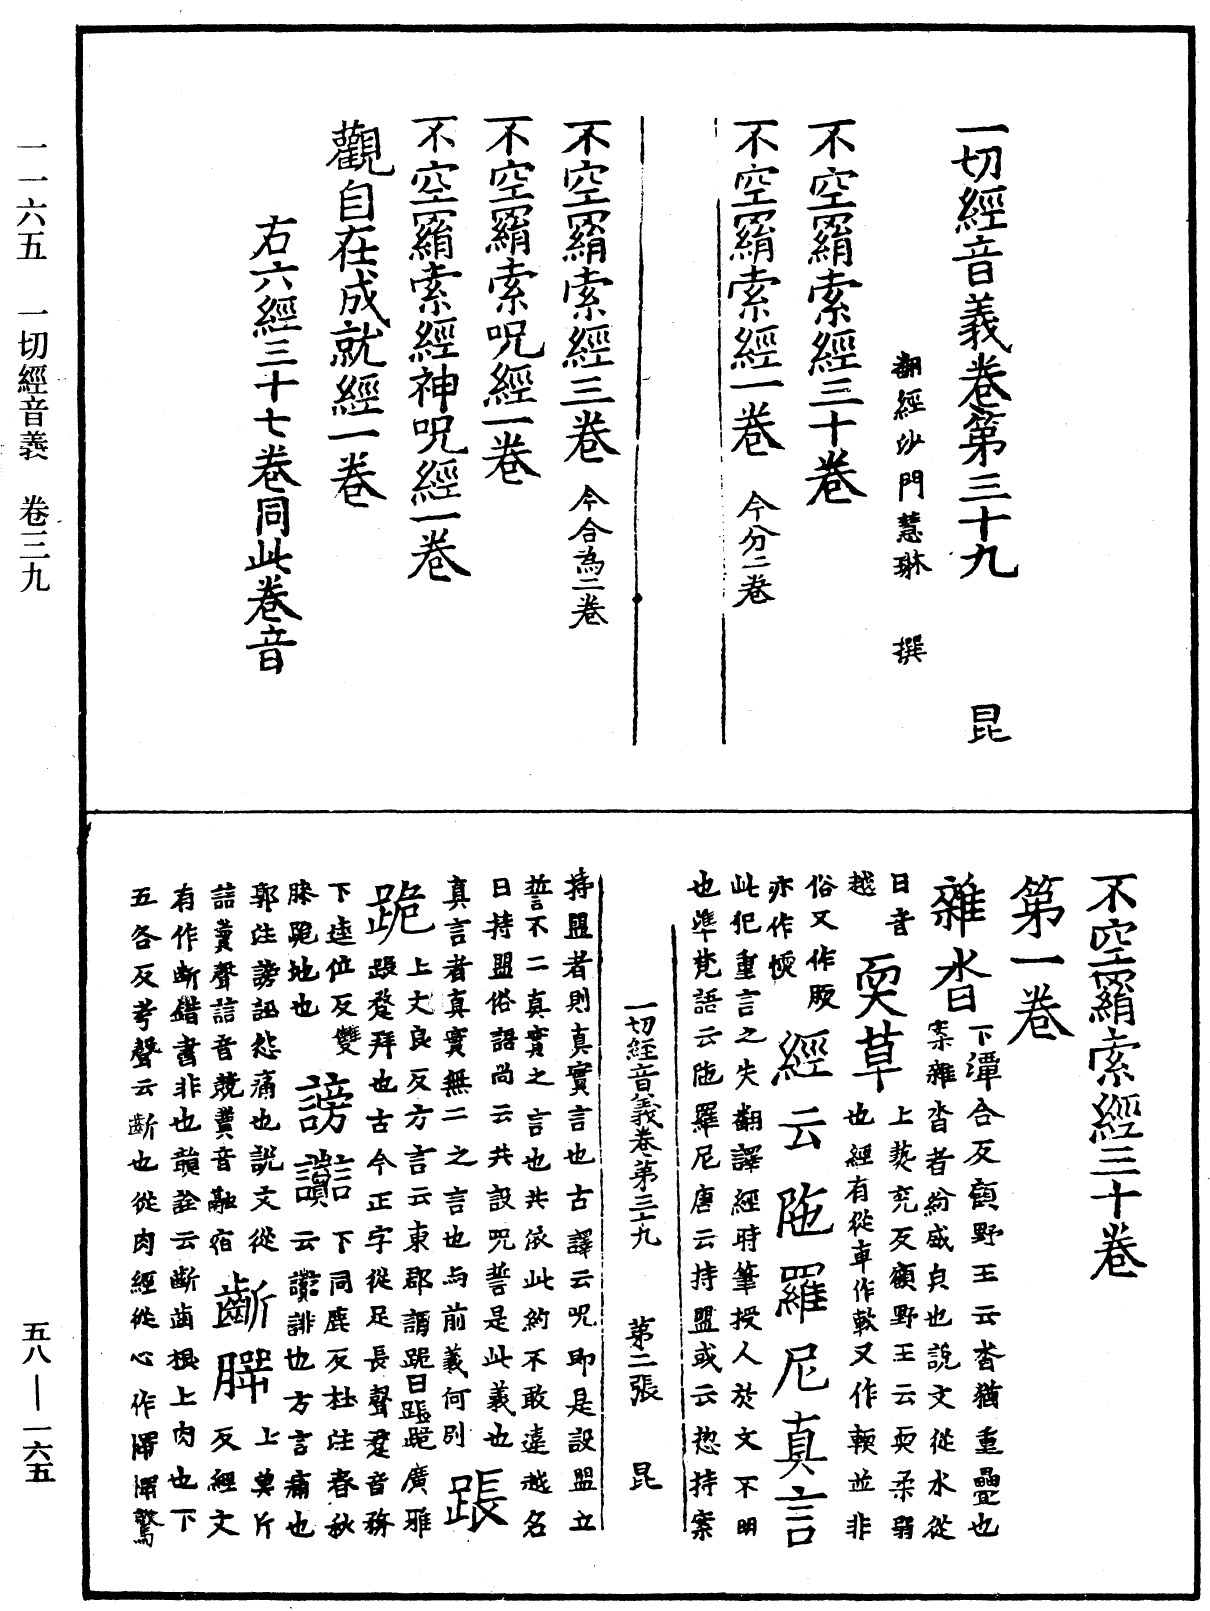 一切經音義卷第三十九　昆
翻經沙門慧琳　撰
不空羂索經三十卷
不空羂索經一卷　今分二卷
不空羂索經三卷　今合為二卷
不空羂索呪經一卷
不空羂索經神呪經一卷
觀自在成就經一卷
右六經三十七卷同此卷音
不空羂索經三十卷
第一卷
雜沓　下潭合反顧野王云沓猶重疊也
案雜沓者紛盛皃也說文從水從
日音
越　耎草　上䎡兖反顧野王云耎柔弱
也經有從車作軟又作輭並非
俗又作䏰　經云陁羅尼真言
亦作愞
此犯重言之失翻譯經時筆授人於文不明
也準梵語云陁羅尼唐云持盟或云惣持案
一切經音義卷第三十九　第二張　昆
持盟者則真實言也古譯云呪即是設盟立
誓不二真實之言也共依此約不敢違越名
曰持盟俗語尚云共設呪誓是此義也
真言者真實無二之言也与前義何別　䠆
跪　上丈良反方言云東郡謂跪曰䠆跽廣雅
䠆䠆拜也古今正字從足長聲䠆音務
下逵位反雙
膝跪地也　謗讟　下同鹿反杜注春秋
云讟誹也方言痛也
郭注謗訕怨痛也說文從
誩𧷓聲誩音競𧷓音融宿　齗䏢　上㒵斤
反經文
有作齗錯書非也韻詮云齗齒根上肉也下
五各反考聲云齗也從肉經從心作㦍㦍驚